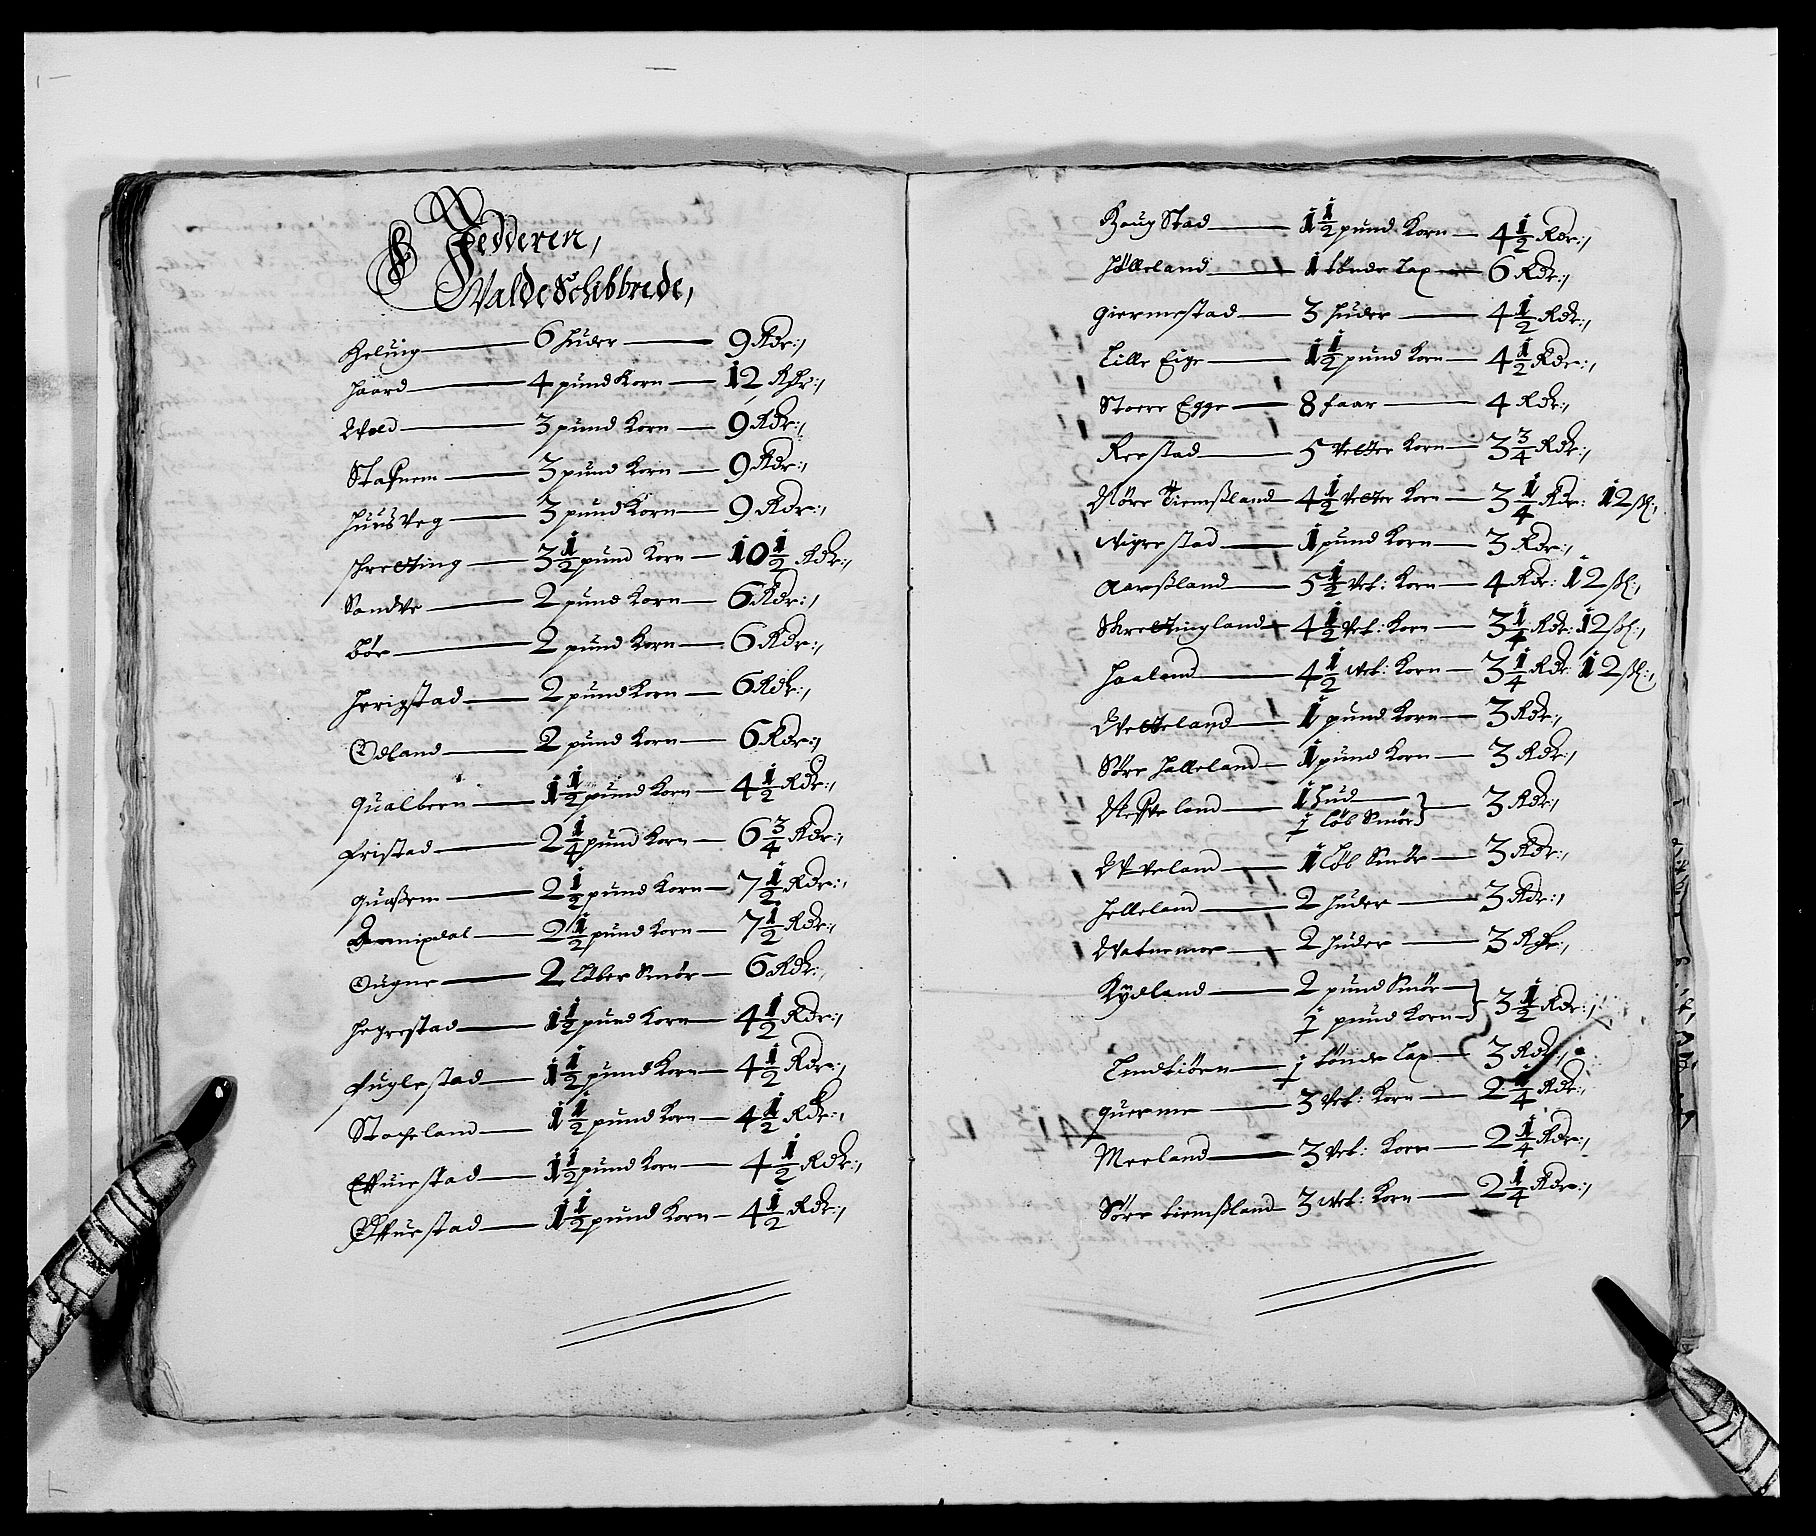 Jedderen,
Walde Schibbrede,
Keluig 6 huder 9 Rdr:,
Haard 4 pund Korn 12 Rdr:,
Wold 3 pund Korn 9 Rdr:,
Stafnem 3 pund Korn 9 Rdr:,
Huusveg 3 pund Korn 9 Rdr:,
Schretting 3 1/2 pund Korn 10 1/2 Rdr:,
Sandve 2 pund Korn 6 Rdr:,
Bör 2 pund Korn 6 Rdr:,
Herigstad 2 pund Korn 6 Rdr:,
Odland 2 pund Korn 6 Rdr:,
Qualbern 1 1/2 pund Korn 4 1/2 Rdr:,
Fristad 2 1/4 pund Korn 6 3/4 Rdr:,
Quaßem 2 1/2 pund Korn 7 1/2 Rdr:,
2 1/2 pund Korn 7 1/2 Rdr:,
Ougne 2 Löber Smör 6 Rdr:,
Hegrestad 1 1/2 pund Korn 4 1/2 Rdr:,
Fuglestad 1 1/2 pund Korn 4 1/2 Rdr:,
Stocheland 1 1/2 pund Korn 4 1/2 Rdr:,
Effuestad 1 1/2 pund Korn 4 1/2 Rdr:,
Öffuestad 1 1/2 pund Korn 4 1/2 Rdr:,
Haugstad 1 1/2 pund Korn 4 1/2 Rdr:,
Hölleland 1 tönde Lax 6 Rdr:,
Giermestad 3 huder 4 1/2 Rdr:,
Lille Eige 1 1/2 pund Korn 4 1/2 Rdr:,
Stoere Egge 8 faar 4 Rdr:,
Reestad 5 Vetter Korn 3 3/4 Rdr:,
Nörre Tiemßland 4 1/2 Vetter Korn 3 1/4 Rdr: 12 ß:,
Wigrestad 1 pund Korn 3 Rdr:,
Aarßland 5 1/2 Vet: Korn 4 Rdr: 12 ß:,
Skrettingland 4 1/2 Vet: Korn 3 1/4 Rdr: 12 ß:,
Haaland 4 1/2 Wet: Korn 3 1/4 Rdr: 12 ß:,
Wetteland 1 pund Korn 3 Rdr:,
Söre Halleland 1 pund Korn 3 Rdr:,
1 hud
1/2 Löb Smör 3 Rdr:,
1 Löb Smör 3 Rdr:,
Helleland 2 huder 3 Rdr:,
Watnemoe 2 huder 3 Rdr:,
Kydland 2 pund Smör
1/2 pund Korn 3 1/2 Rdr:,
Lindtiörn 1/2 tönde Lax 3 Rdr:,
Querme 3 Vet: Korn 2 1/4 Rdr:,
Meeland 3 Vet: Korn 2 1/4 Rdr:,
Söre Tiemßland 3 Wet: Korn 2 1/4 Rdr:,